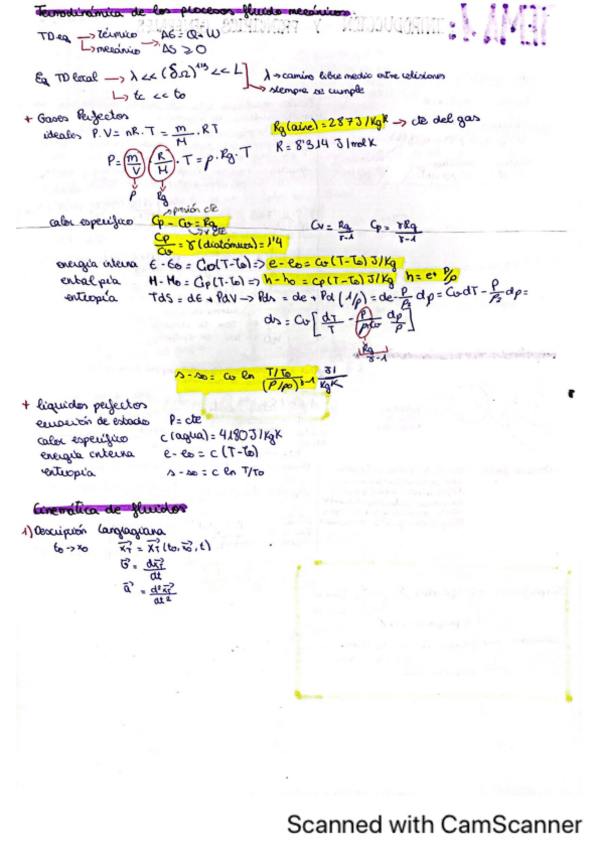 Termodinámica de los procesos fluido mecánicos.
TD eq → térmico ΔE = Q + W
→ mecánico ΔS ≥ 0
Eq TD local → λ << (δΩ)^1/3 << L] λ → camino libre medio entre colisiones
→ tc << to → siempre se cumple
+ Gases Perfectos
ideales P.V = nR.T = m/M . RT Rg(aire) = 287 J/KgK → cte del gas
R = 8'314 J/molK
P = m/V . R/M . T = ρ. Rg. T
ρ Rg
→ presión cte
calor específico Cp - Cv = Rg Cv = Rg/γ-1 Cp = γRg/γ-1
→ v cte
Cp/Cv = γ (diatómica) = 1'4
energía interna E - E0 = Cv(T-T0) => e - e0 = cv(T-T0) J/Kg
entalpia H - H0 = Cp(T-T0) => h - h0 = cp(T-T0) J/Kg h = e + P/ρ
entropía TdS = dE + PdV → Tds = de + Pd(1/ρ) = de - P/ρ² dρ = CvdT - P/ρ² dρ =
ds = Cv [dT/T - P/ρTCv dρ/ρ]
Rg
γ-1
s - s0 = cv ln T/T0/(ρ/ρ0)^γ-1 J/KgK
+ líquidos perfectos
ecuación de estado ρ = cte
calor específico c(agua) = 4180 J/KgK
energía interna e - e0 = c(T-T0)
entropía s - s0 = c ln T/T0
Cinemática de fluidos
1) Descripción Langragiana
t0 → x0 xT = xT(t0, x0, t)
v = dxT/dt
a = d²xT/dt²
Scanned with CamScanner